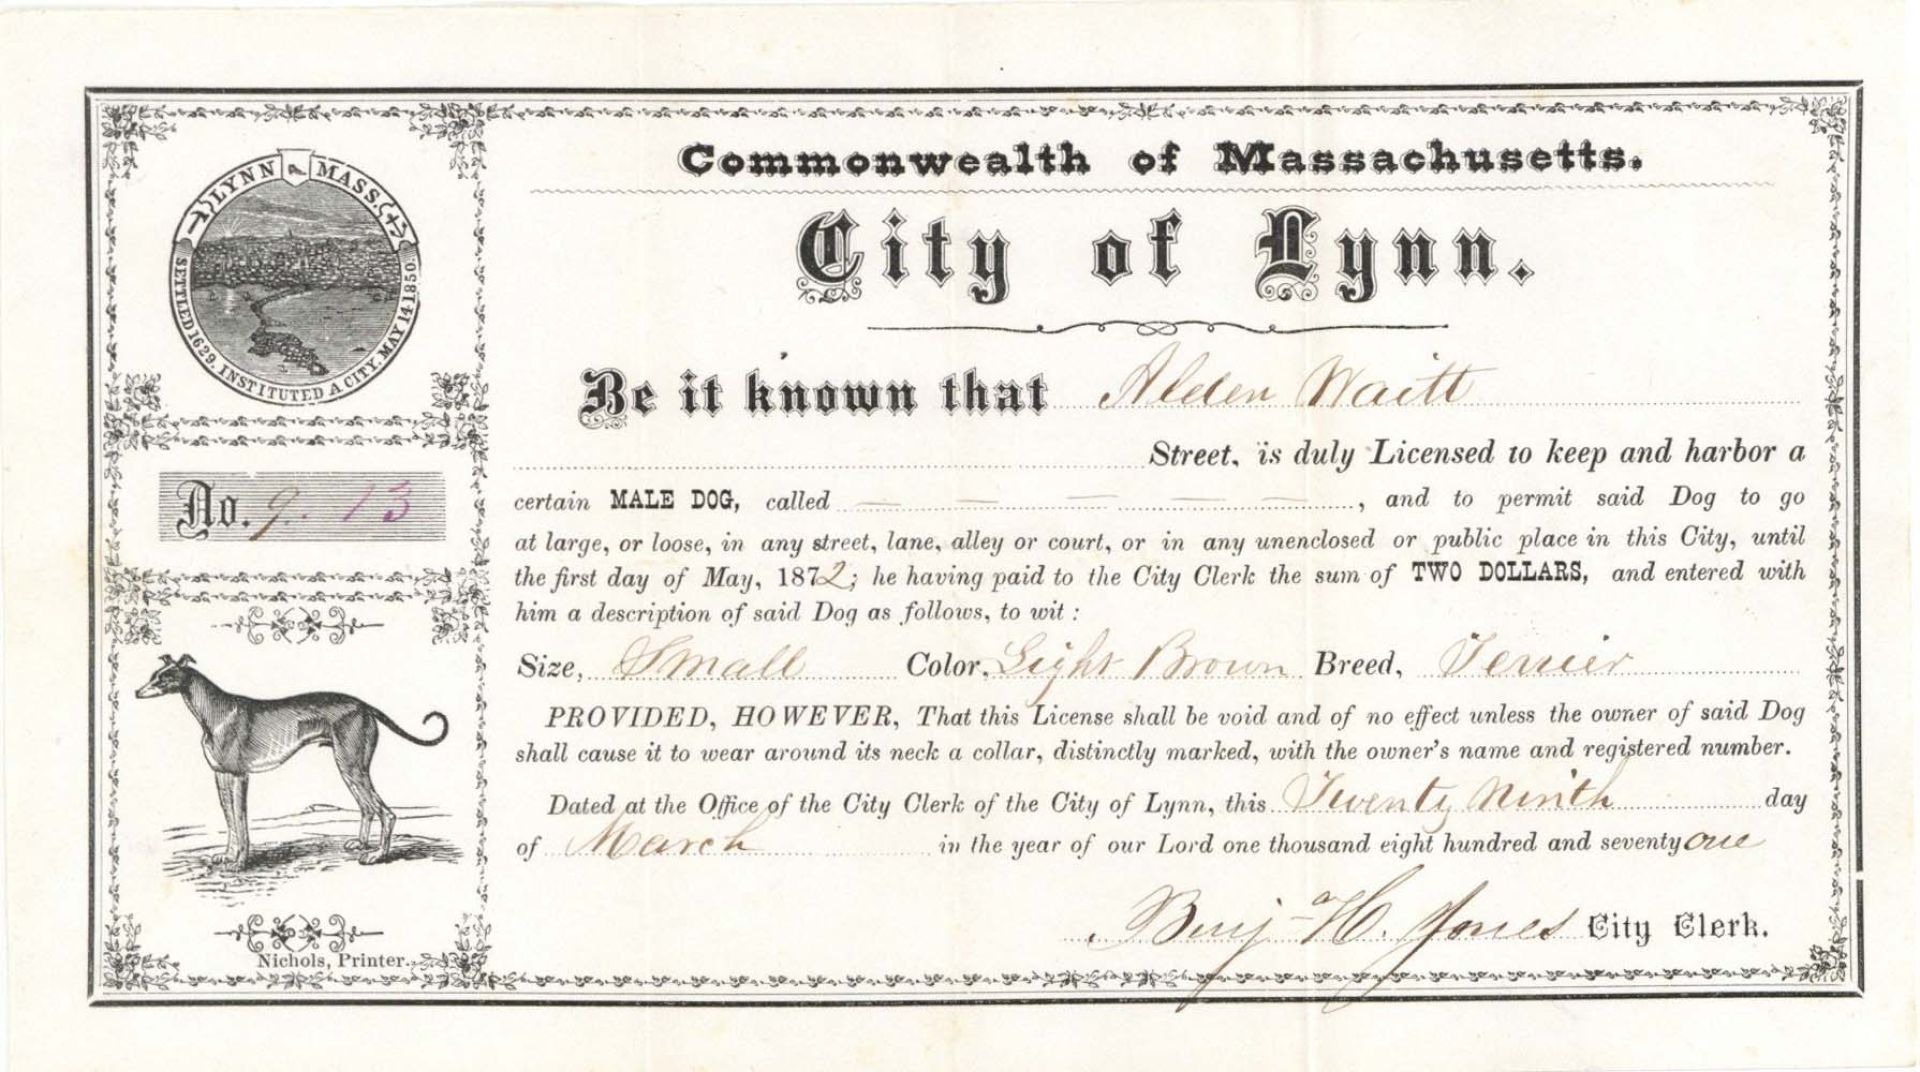 LYNN MASS.
SETTLED 1629. INSTITUTED A CITY. MAY 14 1850.
No. 9. 13
Nichols, Printer.
Commonwealth of Massachusetts.
City of Lynn.
Be it known that Alden Waitt
Street, is duly Licensed to keep and harbor a
certain MALE DOG, called — — — — —, and to permit said Dog to go
at large, or loose, in any street, lane, alley or court, or in any unenclosed or public place in this City, until
the first day of May, 1872; he having paid to the City Clerk the sum of TWO DOLLARS, and entered with
him a description of said Dog as follows, to wit:
Size, Small Color, Light Brown Breed, Terrier
PROVIDED, HOWEVER, That this License shall be void and of no effect unless the owner of said Dog
shall cause it to wear around its neck a collar, distinctly marked, with the owner's name and registered number.
Dated at the Office of the City Clerk of the City of Lynn, this Twenty Ninth day
of March in the year of our Lord one thousand eight hundred and seventy one
Benj H. Jones City Clerk.